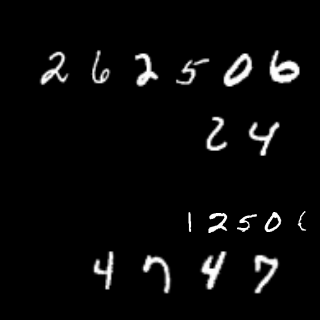 262506
24
1250
4747